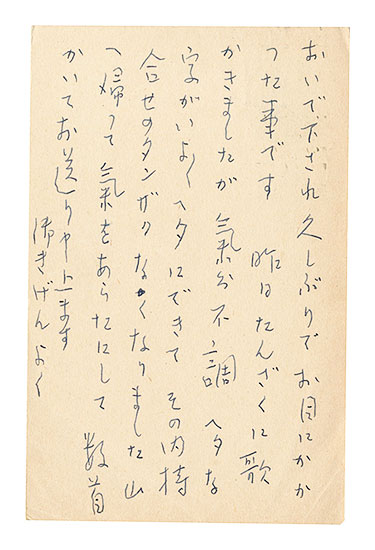 おいで下され久しぶりでお目にかか
つた事です 昨日たんざくに歌
かきましたが氣分不調 ヘタな
字がいよ〱ヘタにできて その内持
合せのタンザクなくなりました山
へ帰つて氣をあらたにして 数首
かいてお送り申上ます
御きげんよく